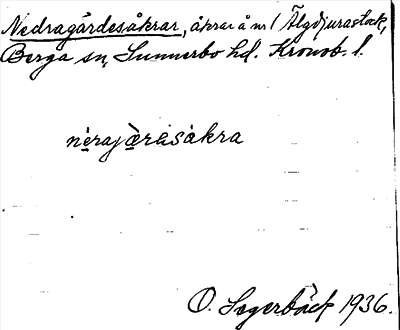 Nedragärdesåkrar, åkrar å nr 1 Älgdjurastock,
Berga sn, Sunnerbo hd. Kronob. l.
nèrajæ̀ṛesåkra
O. Segerbäck 1936.